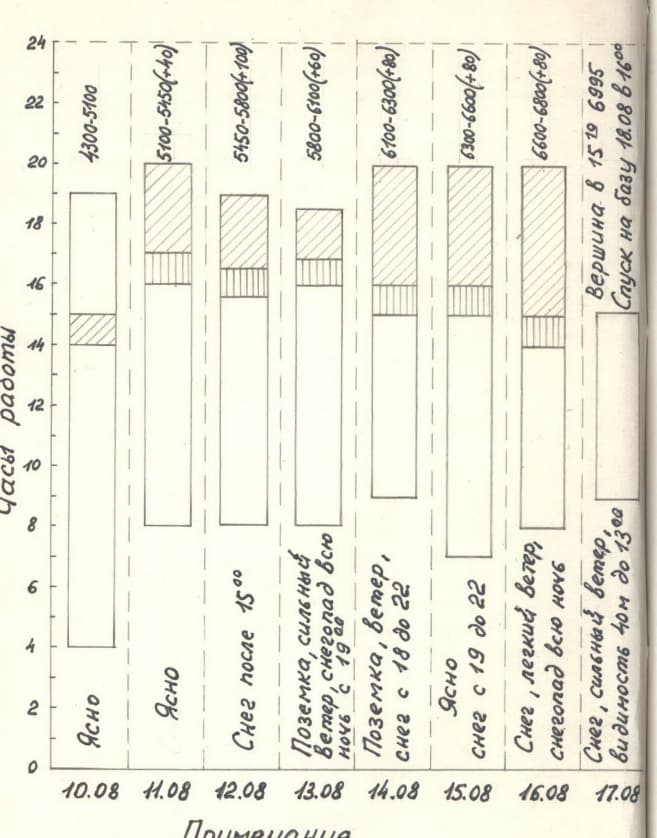 24
22
20
18
16
14
12
10
8
6
4
2
0
Часы работы
4300-5100
5100-5450(+40)
5450-5800(+100)
5800-6100(+60)
6100-6300(+80)
6300-6600(+80)
6600-6800(+80)
Вершина в 15¹⁹ 6995
Спуск на базу 18.08 в 16⁰⁰
Ясно
Ясно
Снег после 15⁰⁰
Поземка, сильный
ветер, снегопад всю
ночь с 19⁰⁰
Поземка, ветер,
снег с 18 до 22
Ясно
снег с 19 до 22
Снег, легкий ветер,
снегопад всю ночь
Снег, сильный ветер,
видимость 40м до 13⁰⁰
10.08
11.08
12.08
13.08
14.08
15.08
16.08
17.08
Примечание